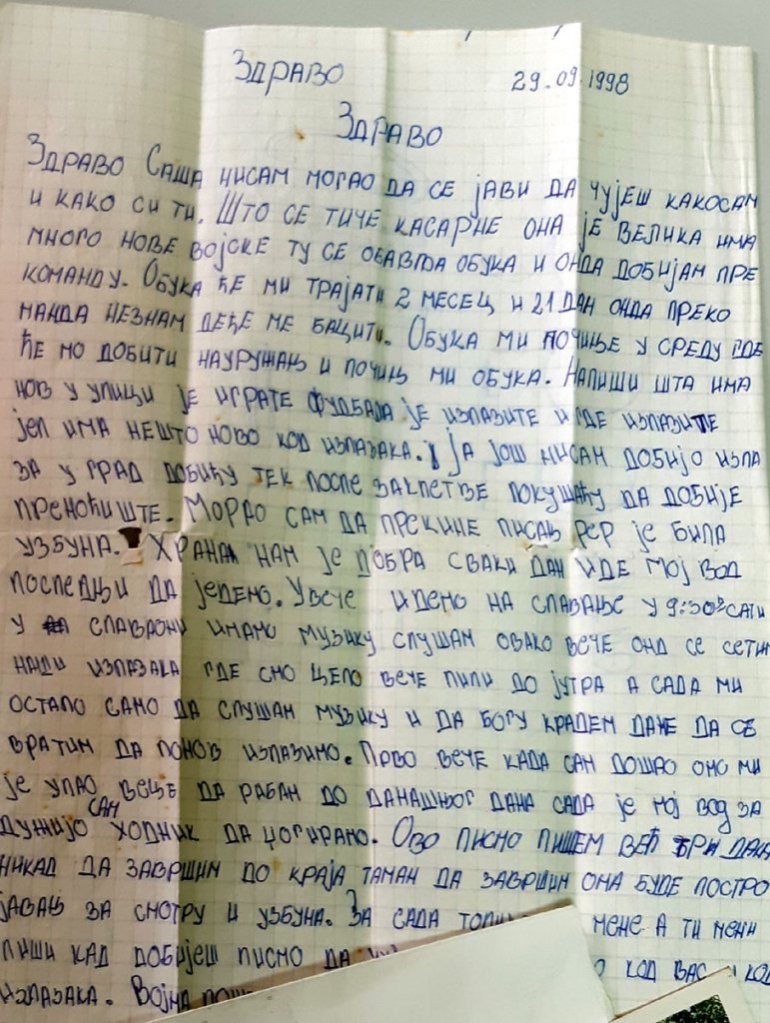 Здраво 29.09.1998
Здраво
Здраво Саша нисам могао да се јави да чујеш какосам
и како си ти. Што се тиче касарне она је велика има
много нове војске ту се обавља обука и онда добијам пре
команду. Обука ће ми трајати 2 месец и 21 дан онда преко
манда незнам деће ме бацити. Обука ми почиње у среду где
ће мо добити наурушањ и почињ ми обука. Напиши шта има
нов у улици је играте фудбала је излазите и где излазите
јел има нешто ново код излазака. Ја још нисам добијо изла
за у град добићу тек после заклетве покушаћу да добије
преноћиште. Морао сам да прекине писањ јер је била
узбуна. Храна нам је добра сваки дан иде мој вод
последњи да једемо. Увече идемо на спавање у 9:30 сати
у спаваони имамо музику слушам овако вече онд се сетим
наши излазака где смо цело вече пили до јутра а сада ми
остало само да слушам музику и да богу крадем дане да се
вратим да понов излазимо. Прво вече када сам дошао омо ми
је упао веце да рабам до данашњог дана сада је мој вод за
дужијо сам ходник да џогирамо. Ово писмо пишем већ три дана
никад да завршим до краја таман да завршим она буде постро
јавањ за смотру и узбуна. За сада мене а ти мени
пиши кад добијеш писмо да код вас и код
излазака. Војна